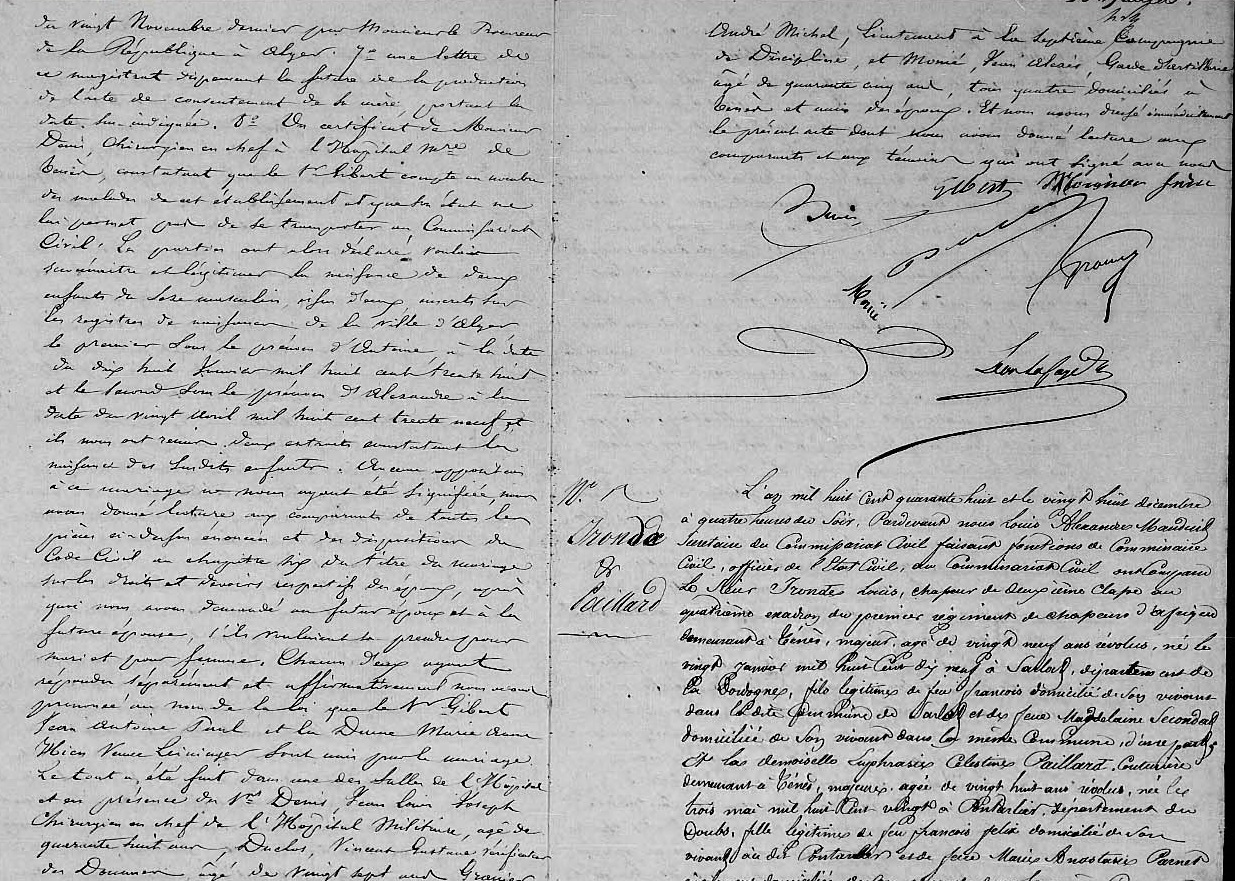 du vingt Novembre dernier par Monsieur le Procureur
de la République à Alger. 7º une lettre de
ce magistrat dispensant la future de la production
de l'acte de consentement de sa mère, portant la
date sus indiquée. 8º Un certificat de Monsieur
Denis, Chirurgien en chef à l'Hôpital Mre de
Ténès, constatant que le Sr Gibert compte au nombre
des malades de cet établissement et que son état ne
lui permet pas de se transporter au Commissariat
Civil. Les parties ont alors déclaré vouloir
reconnaitre et légitimer la naissance de deux
enfants du sexe masculin, issus d'eux, inscrits sur
les registres de naissance de la ville d'Alger
le premier sous le prénom d'Antoine, à la date
du dix huit Janvier mil huit cent trente huit
et le second sous le prénom d'Alexandre à la
date du vingt Avril mil huit cent trente neuf et
ils nous ont remis deux extraits constatant la
naissance des susdits enfants. Aucune opposition
à ce mariage ne nous ayant été signifiée nous
avons donné lecture aux comparants de toutes les
pièces ci-dessus énoncées et des dispositions du
Code Civil au chapitre six du titre du mariage
sur les droits et devoirs respectifs des époux, après
quoi nous avons demandé au futur époux et à la
future épouse, s'ils voulaient se prendre pour
mari et pour femme. Chacun d'eux ayant
répondu séparément et affirmativement nous avons
prononcé au nom de la loi que le Sr Gibert
Jean Antoine Paul et la Dame Marie Anne
Veuve Leininger sont unis par le mariage.
Le tout a été fait dans une des salles de l'Hôpital
et en présence du Sr Denis Jean Louis Joseph
Chirurgien en chef de l'Hôpital Militaire, agé de
quarante huit ans, Duclos, Vincent Gustave Vérificateur
des Douanes âgé de vingt sept ans Granier
André Michel, Lieutenant à la septième Compagnie
de Discipline, et Monié, Jean Alexis, Garde d'artillerie
âgé de quarante cinq ans, tous quatre domiciliés à
Ténès et amis des époux. Et nous avons dressé immédiatement
le présent acte dont nous avons donné lecture aux
comparants et aux témoins qui ont signé avec nous
Gibert
Denis
Monié
Nº 5
Tronde
&
Paillard
L'an mil huit cent quarante huit et le vingt huit décembre
à quatre heures du Soir, Pardevant nous Louis Alexandre
Secrétaire du Commissariat Civil faisant fonctions de Commissaire
Civil, officier de l'Etat Civil, au Commissariat Civil ont comparu
Le Sieur Trondes Louis, chasseur de deuxième classe au
quatrième escadron du premier régiment de chasseurs d'afrique
demeurant à Ténès, majeur, agé de vingt neuf ans révolus, né le
vingt janvier mil huit cent dix neuf à Sarlat, département de
la Dordogne, fils légitime de feu françois domicilié de son vivant
dans la dite Commune de Sarlat et de feue Magdelaine Secondat
domiciliée de son vivant dans la même Commune, d'une part,
Et la demoiselle Euphrasie Célestine Paillard, Couturière
demeurant à Ténès, majeure, agée de vingt huit ans révolus, née le
trois mai mil huit cent vingt à Pontarlier, département du
Doubs, fille légitime de feu françois felix domicilié de son
vivant au dit Pontarlier et de feue Marie Anastasie Parnet